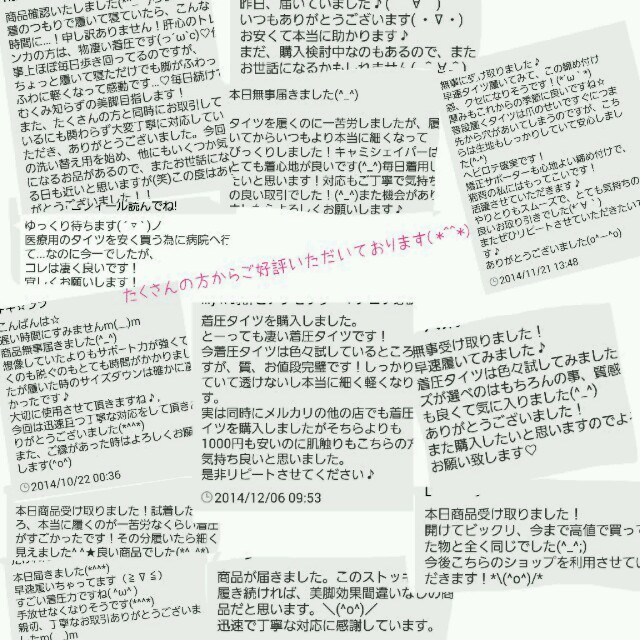 商品確認いたしました(*^
蟹のつもりで履いて寝ていたら、こんな
時間に…！申し訳ありません！肝心のトレ
ンカの方は、物凄い着圧です(っ´ω`c)♡仕
事上ほぼ毎日歩き回ってるのですが、
ちょっと履いて寝ただけでも脚がふわっ
ふわに軽くなって感動です…♡毎日続けて
むくみ知らずの美脚目指します！
また、たくさんの方と同時にお取引して
いるにも関わらず大変丁寧に対応してい
ただき、ありがとうございました。今回
の洗い替え用を始め、他にもいくつか気
になるお品があるので、またお世話にな
る日も近いと思いますが(笑)この度はあ
りがとうございました！！
昨日、届いていました♪(
いつもありがとうございます(・∇・)
お安くて本当に助かります♪
まだ、購入検討中なのもあるので、また
お世話になるかもしれません
本日無事届きました(^_^)
タイツを履くのに一苦労しましたが、履
いてからいつもより本当に細くなって
びっくりしました！キャミシェイパーは
とても着心地が良いです(^_^)毎日着用し
たいと思います！対応もご丁寧で気持ち
の良い取引でした！(^_^)また機会があり
ましたらよろしくお願いします♪
無事に受け取りました♪
早速タイツ履いてみて、この締め付け
感、クセになりそうです！(*´ω｀*)
厚みもこれからの季節に良いですね☆
普段履くタイツは爪のせいですぐにつま
先から穴があいてしまうのですが、こち
らは生地もしっかりしていて安心しまし
た(^-^)
ヘビロテ確実です！
矯正サポーターも心地よい締め付けで、
猫背の私にはもってこいです！
活躍させていただきます♪
やりとりもスムーズで、とても気持ちの
良いお取引きでした(*´∀｀)
またぜひリピートさせていただきたいで
す♪
ありがとうございました(o^―^o)
2014/11/21 13:48
イール読んでね!
ゆっくり待ちます(´▽`)ノ
医療用のタイツを安く買う為に病院へ行
て…なのに今一でしたが、
コレは凄く良いです！
宜しくお願いします！
たくさんの方からご好評いただいております(*^^*)
こんばんは☆
遅い時間にすみませんm(._.)m
商品無事届きました(^_^)
想像していたよりもサポート力が強くて
くのも脱ぐのもとても時間がかかりまし
たが履いた時のサイズダウンは確かに凄
かったです♪
大切に使用させて頂きますね♪
今回は迅速且つ丁寧な対応をして頂きあ
りがとうございました(*^^*)
また、ご縁があった時はよろしくお願い
します(^o^)
2014/10/22 00:36
着圧タイツを購入しました。
とーっても凄い着圧タイツです！
今着圧タイツは色々試しているところ
すが、質、お値段完璧です！しっかり
ていて透けないし本当に細く軽くなり
す。
実は同時にメルカリの他の店でも着圧
イツを購入しましたがそちらよりも
1000円も安いのに肌触りもこちらの方
気持ち良いと思いました。
是非リピートさせてください♪
2014/12/06 09:53
無事受け取りました！
早速履いてみました♪
着圧タイツは色々試してみましたが
ズが選べのはもちろんの事、質感
も良くて気に入りました(^_^)
ありがとうございました！
また購入したいと思いますのでよ
お願い致します♡
本日商品受け取りました！試着した
ろ、本当に履くのが一苦労なくらい着圧
がすごかったです！その分履いたら細く
見えました^_^★良い商品でした(*^_^*)
本日届きました(*^^*)
早速履いちゃってます（≧∇≦）
すごい着圧力ですね(^ω^)
手放せなくなりそうです(*^^*)
親切、丁寧なお取引ありがとうございま
したm(__)m
商品が届きました。このストッキ
履き続ければ、美脚効果間違いなしの商
品だと思います。＼(^o^)／
迅速で丁寧な対応に感謝しています。
本日商品受け取りました！
開けてビックリ、今まで高値で買って
た物と全く同じでした(^_^;)
今後こちらのショップを利用させてい
だきます！*\(^o^)/*